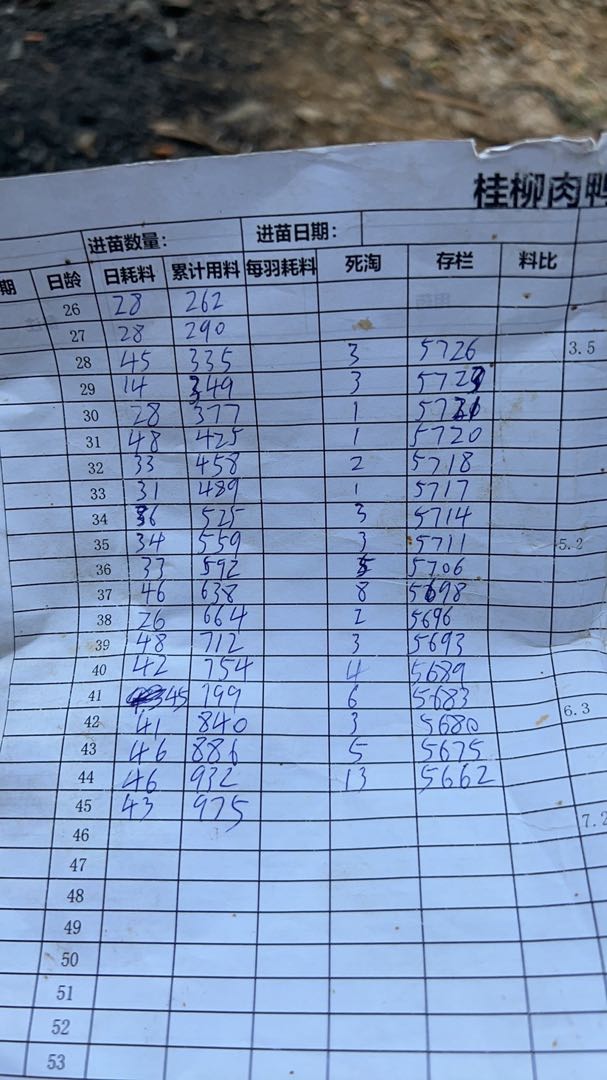 桂柳肉鸭
进苗数量: 进苗日期:
期 日龄 日耗料 累计用料 每羽耗料 死淘 存栏 料比
26 28 262
27 28 290
28 45 335 3 5726 3.5
29 14 349 3 5723
30 28 377 1 5721
31 48 425 1 5720
32 33 458 2 5718
33 31 489 1 5717
34 36 525 3 5714
35 34 559 3 5711 5.2
36 33 592 5 5706
37 46 638 8 5698
38 26 664 2 5696
39 48 712 3 5693
40 42 754 4 5689
41 45 799 6 5683 6.3
42 41 840 3 5680
43 46 886 5 5675
44 46 932 13 5662
45 43 975 7.2
46
47
48
49
50
51
52
53